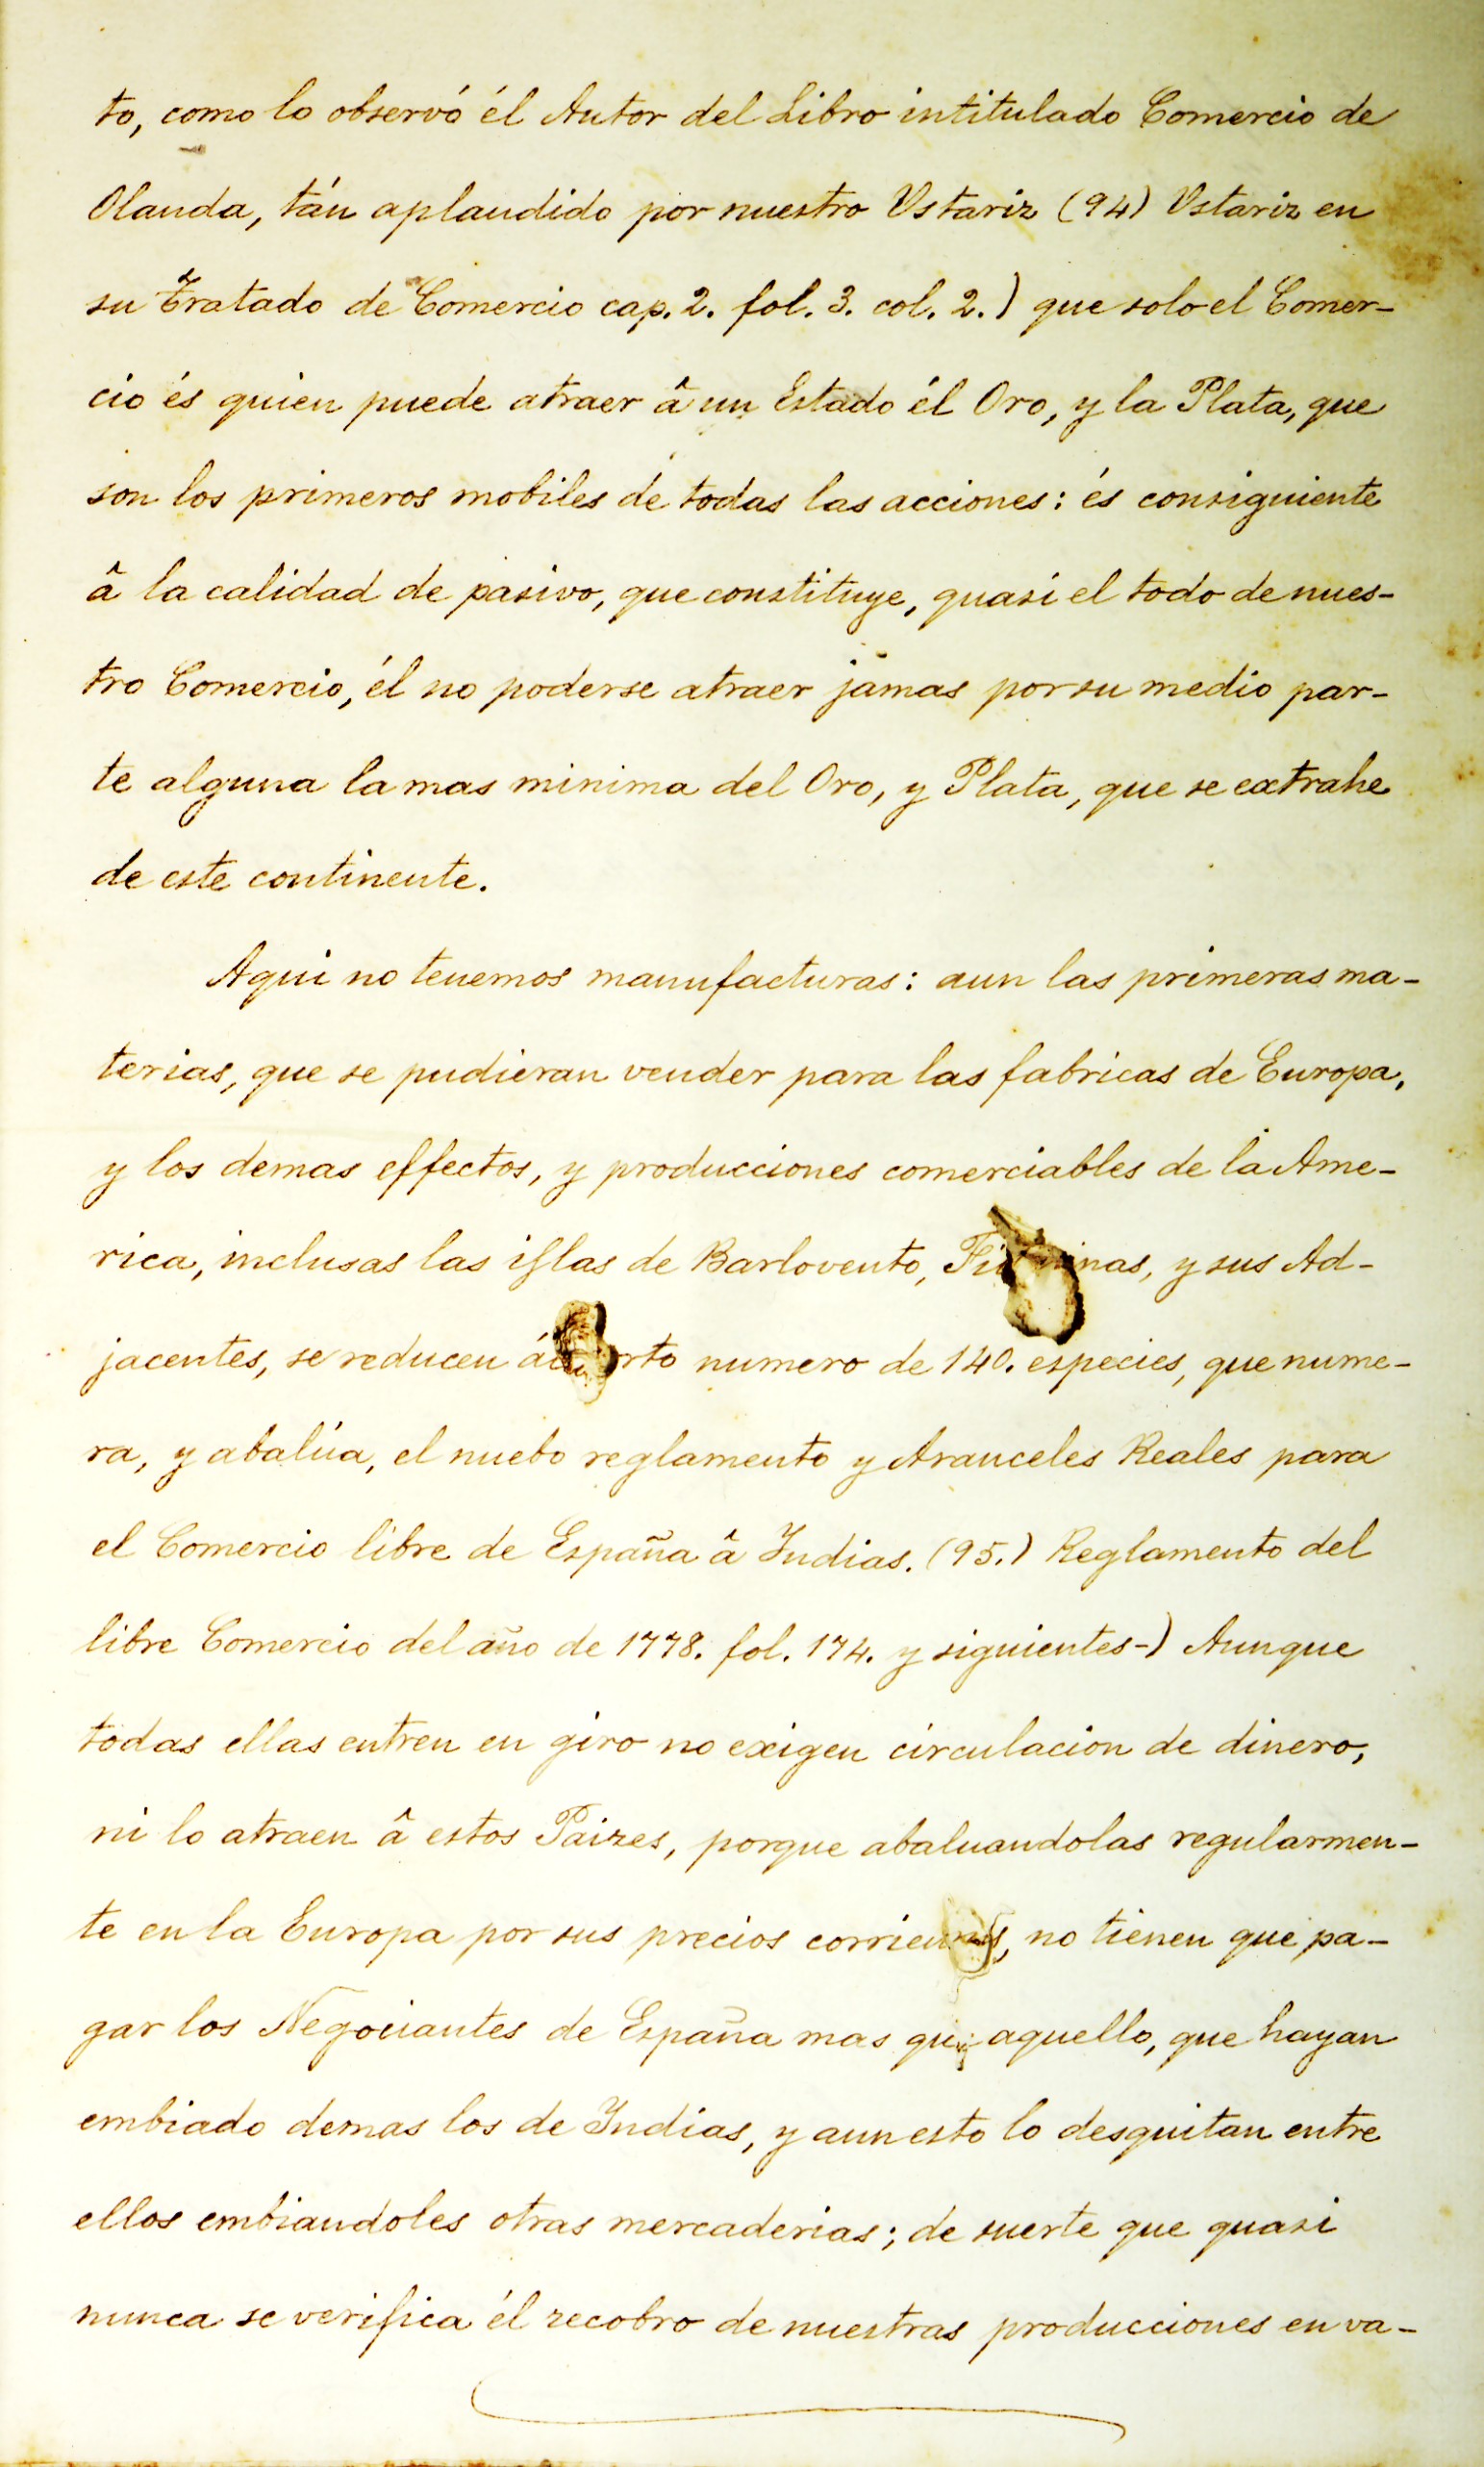 to, como lo observó él Autor del Libro intitulado Comercio de
Olanda, tán aplaudido por nuestro Ustariz (94) Ustariz en
su Tratado de Comercio cap. 2. fol. 3. col. 2.) que solo el Comer-
cio és quien puede atraer â un Estado él Oro, y la Plata, que
son los primeros mobiles de todas las acciones: és consiguiente
â la calidad de pasivo, que constituye, quasi el todo de nues-
tro Comercio, él no poderse atraer jamas por su medio par-
te alguna la mas minima del Oro, y Plata, que se extrahe
de este continente.
Aqui no tenemos manufacturas: aun las primeras ma-
terias, que se pudieran vender para las fabricas de Europa,
y los demas effectos, y producciones comerciables de la Ame-
rica, inclusas las islas de Barlovento, y sus Ad-
jacentes, se reducen numero de 140. especies, que nume-
ra, y abalúa, el nuebo reglamento y Aranceles Reales para
el Comercio libre de España â Indias. (95.) Reglamento del
libre Comercio del año de 1778. fol. 174. y siguientes-) Aunque
todas ellas entren en giro no exigen circulacion de dinero,
ni lo atraen â estos Paizes, porque abaluandolas regularmen-
te en la Europa por sus precios corrientes, no tienen que pa-
gar los Negociantes de España mas que aquello, que hayan
embiado demas los de Indias, y aun esto lo desquitan entre
ellos embiandoles otras mercaderias; de suerte que quasi
nunca se verifica él recobro de nuestras producciones en va-